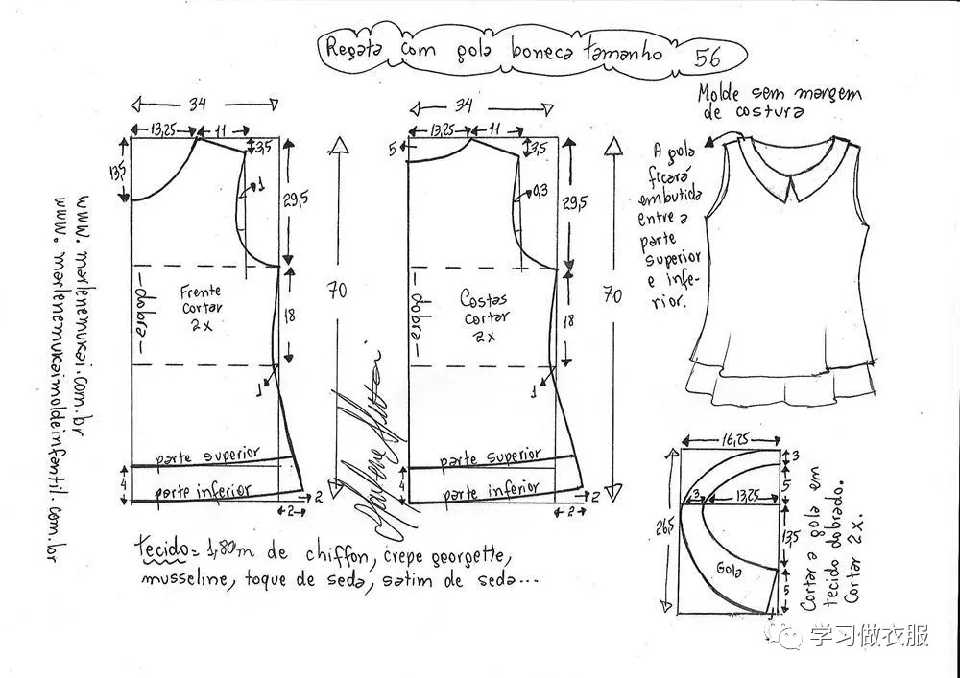 Regata com gola boneca tamanho 56
Molde sem margem
de costura
34
13,25
11
3,5
13,5
1
29,5
70
dobra
Frente
cortar
2x
18
1
parte superior
parte inferior
4
2
2
34
13,25
11
5
3,5
0,3
29,5
70
dobra
Costas
cortar
2x
18
1
parte superior
parte inferior
4
2
2
A gola
ficará
embutida
entre a
parte
superior
e infe-
rior.
16,25
3
5
3
13,25
26,5
13,5
Gola
5
Cortar a gola em
tecido dobrado.
Cortar 2x.
www.marlenemukai.com.br
www.marlenemukaimoldeinfantil.com.br
Marlene Mukai
tecido = 1,80m de chiffon, crepe georgette,
musseline, toque de seda, satim de seda...
学习做衣服